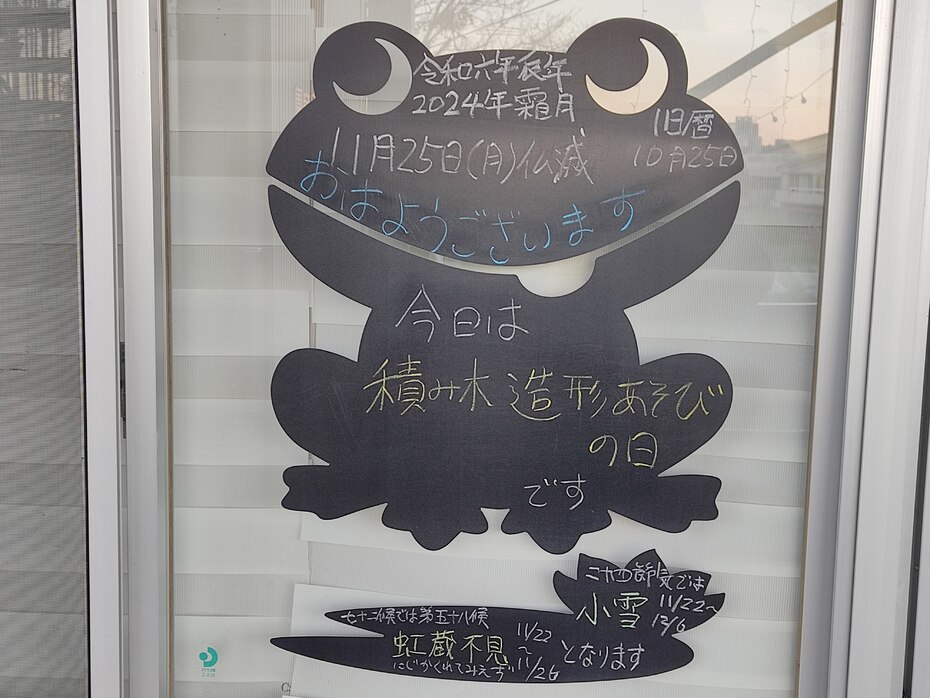 令和六年辰年
2024年霜月
旧暦
11月25日(月)仏滅
10月25日
おはようございます
今日は
積み木造形あそび
の日
です
二十四節気では
小雪 11/22～
12/6
七十二候では第五十八候
虹蔵不見 11/22
～
11/26
にじかくれてみえず
となります